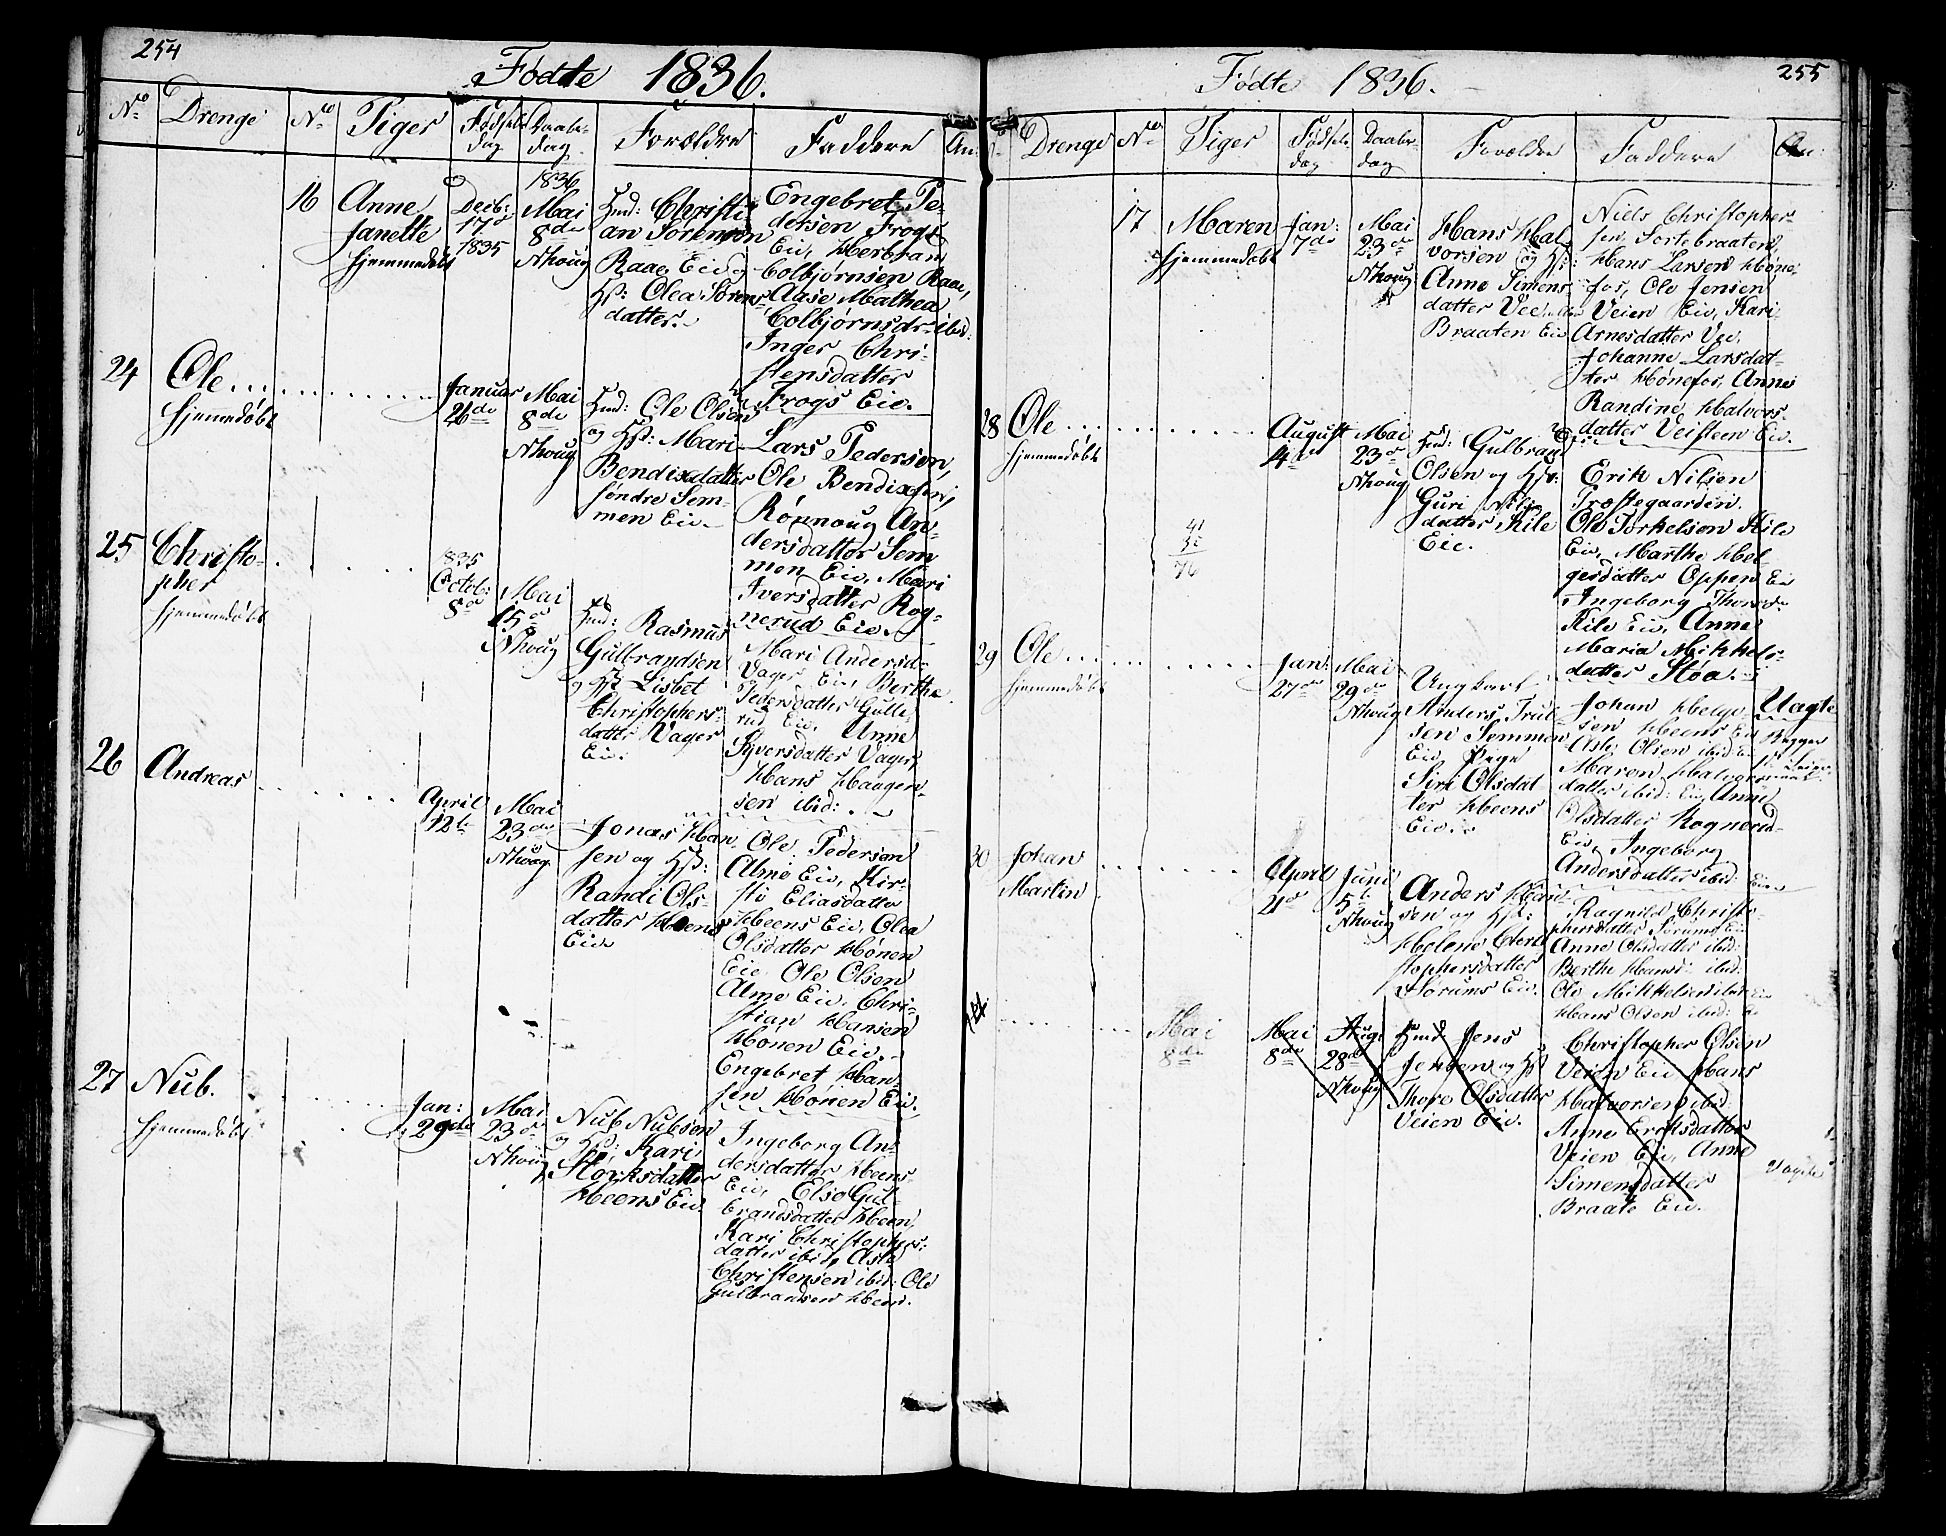 254
Födte 1836.
No Drenge No Piger Födsels dag Daabs dag Forældre Faddere An:
16 Anne
Janette
hjemmedöbt
Decb:
17de
1835
1836
Mai
8de
Nhoug
Hmd: Christi-
an Sörensen
Raae Eie og
Hs: Olea Sörens-
datter.
Engebret Pe-
dersen Frogs
Eie, Herbram
Colbjörnsen Raae,
Aase Mathea
Colbjörnsdr ibid:
Inger Chri-
stensdatter
Frogs Eie.
24 Ole
hjemmedöbt
Januar
26de
Mai
8de
Nhoug
Hmd: Ole Olsen
og Hs: Mari
Bendixdatter
söndre Sem-
men Eie.
Lars Pedersen,
Ole Bendixsen,
Rönnoug An-
dersdatter Sem
men Eie, Mari
Iversdatter Rog-
nerud Eie.
25 Christo-
pher
hjemmedöbt
1835
Octob:
8de
Mai
15de
Nhoug
Hmd: Rasmus
Gulbrandsen
og Hs Lisbet
Christophers-
datter Vager
Eie.
Mari Andersd-
Vager Eie, Berthe
Pedersdatter Gulle-
rud Eie, Anne
Syversdatter Vager,
Hans Haagen-
sen ibid:
26 Andreas
April
12te
Mai
23de
Nhoug
Jonas Han-
sen og Hs:
Randi Ols-
datter Heens
Eie
Ole Pedersen
Alme Eie, Kir-
sti Eliasdatter
Heens Eie, Olea
Olsdatter Hönen
Eie, Ole Olsen
Alme Eie, Chri-
stian Hansen
Hönen Eie.
Engebret Han-
sen Hönen Eie.
27 Nub.
hjemmedöbt
Jan:
29de
Mai
23de
Nhoug
Nub Nubsen
og Hs: Kari
Storksdatter
Heens Eie
Ingeborg An-
dersdatter Heens
Eie, Else Gul-
brandsdatter Heen
Kari Christophers:
datter ibid, Asle
Christensen ibid: Ole
Gulbrandsen Heen.
255
Födte 1836.
Drenge No Piger Födsels dag Daabs dag Forældre Faddere An:
17 Maren
hjemmedöbt
Jan:
7de
Mai
23de
Nhoug
Hans Hal-
vorsen og Hs:
Anne Simens-
datter Vee
Braaten Eie
Niels Christopher
sen Sortebraaten,
Hans Larsen Höne-
fos, Ole Jensen
Veien Eie, Kari
Arnesdatter Vee,
Johanne Larsdat-
ter Hönefos, Anne
Randine Halvors-
datter Veisteen Eie.
28 Ole
hjemmedöbt
August
4de
Mai
23de
Nhoug
Hmd: Gulbrand
Olsen og Hs:
Guri Nils-
datter Kile
Eie.
Erik Nilsen
Præstegaarden.
Ole Torkelsen Kile
Eie, Marthe Hel-
gesdatter Oppen Eie
Ingeborg Thoresd-
Kile Eie, Anne
Maria Mikkels-
datter Stöa.
41
35
76
29 Ole
hjemmedöbt
Jan:
27de
Mai
29de
Nhoug
Ungkarl
Anders Trul-
sen Semmen
Eie, Pige
Siri Olsdat
ter Heens
Eie.
Johan Helge-
sen Heens Eie
Asle Olsen ibid: Eie
Maren Halvors-
datter ibid: Eie, Anne
Olsdatter Rognerud
Eie, Ingeborg
Andersdatter ibid: Eie
Uægte
30 Johan
Martin
April
21de
Juni
5te
Nhoug
Anders Han-
sen og Hs:
Helene Chri-
stophersdatter
Sörums Eie.
Ragnild Christo-
phersdatter Sörums Eie
Anne Olsdatter ibid:
Berthe Hansd: ibid:
Ole Mikkelsen ibid: Eie
Hans Olsen ibid:
Mai
8de
Mai
8de
Aug:
28de
Nhoug
Hmd Jens
Jensen og Hs
Thore Olsdatter
Veien Eie.
Christopher Olsen
Veien Eie Hans
Halvorsen ibid:
Anne Eriksdatter
Veien Eie, Anne
Simensdatter
Braate Eie.